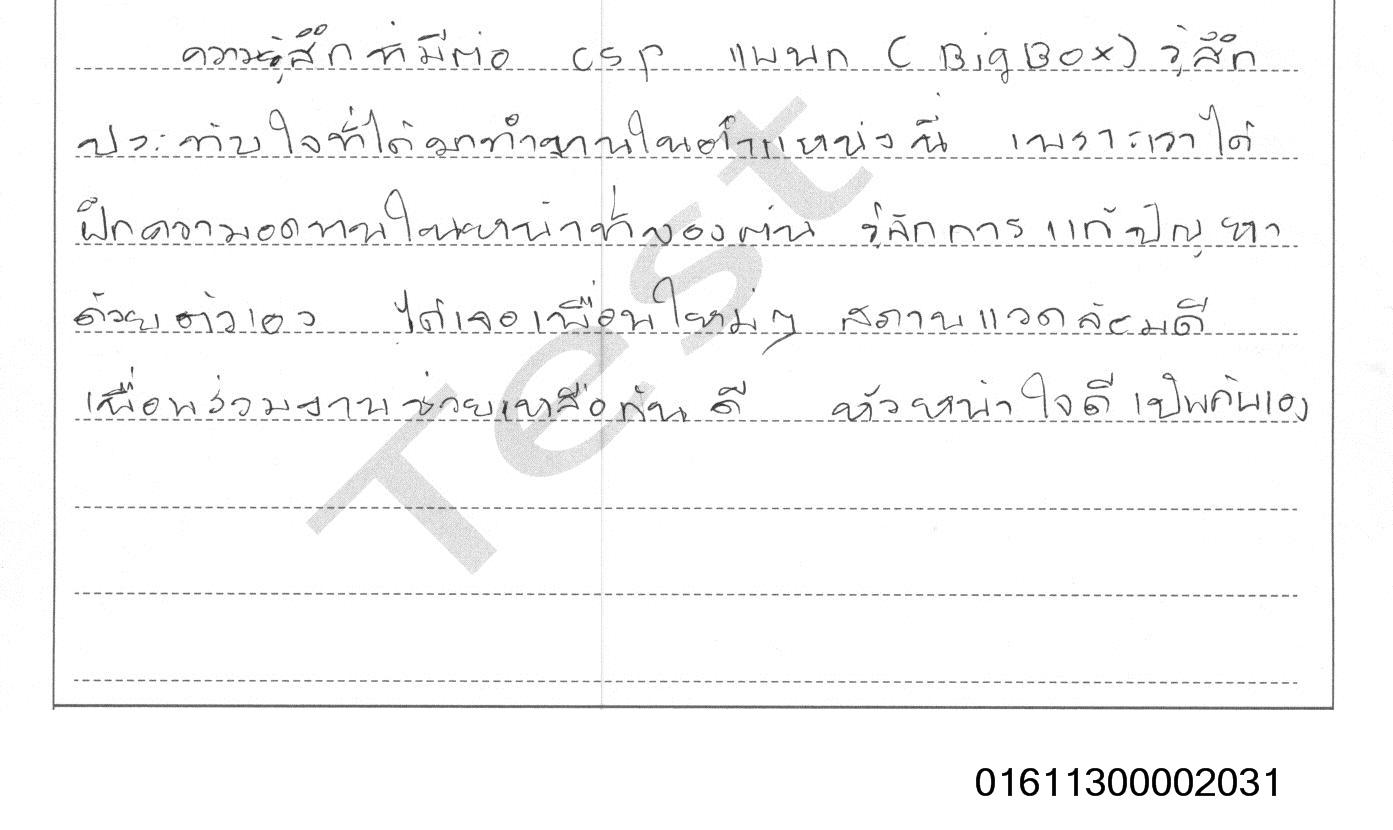 ความรู้สึกที่มีต่อ CSP แผนก (BigBox) รู้สึก
ประทับใจที่ได้มาทำงานในตำแหน่งนี้ เพราะเราได้
ฝึกความอดทนในหน้าที่ของตน รู้จักการแก้ปัญหา
ด้วยตัวเอง ได้เจอเพื่อนใหม่ๆ สภาพแวดล้อมดี
เพื่อนร่วมงานช่วยเหลือกันดี หัวหน้าใจดีเป็นกันเอง
Test
01611300002031